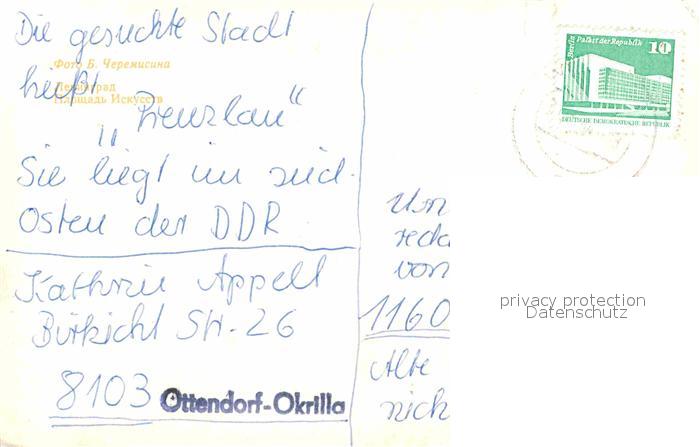 Die gesuchte Stadt
Фото Б. Черемисина
heißt
Ленинград
Площадь Искусств
„Prenzlau“
Sie liegt im süd-
Osten der DDR
Kathrin Appelt
Birkicht Str. 26
8103 Ottendorf-Okrilla
Berlin Palast der Republik
10
DEUTSCHE DEMOKRATISCHE REPUBLIK
Um
reda
von
1160
Alte
nich
privacy protection
Datenschutz